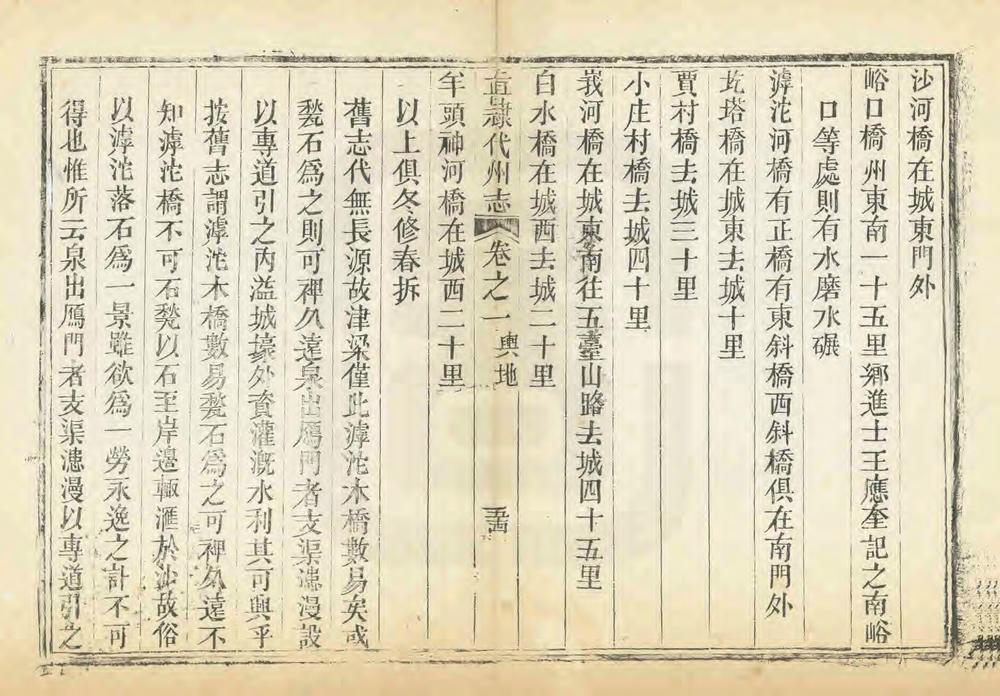 沙河橋在城東門外
峪口橋州東南一十五里鄉進士王應奎記之南峪
口等處則有水磨水碾
滹沱河橋有正橋有東斜橋西斜橋俱在南門外
圪塔橋在城東去城十里
賈村橋去城三十里
小庄村橋去城四十里
峩河橋在城東南往五臺山路去城四十五里
白水橋在城西去城二十里
直隸代州志 卷之一 輿地 五十四
羊頭神河橋在城西二十里
以上俱冬修春拆
舊志代無長源故津梁僅此滹沱木橋數易矣或
甃石爲之則可裨久遠泉出鴈門者支渠漶漫設
以專道引之內溢城壕外資灌漑水利其可興乎
按舊志謂滹沱木橋數易甃石爲之可裨久遠不
知滹沱橋不可石甃以石至岸邊輒滙於沙故俗
以滹沱落石爲一景雖欲爲一勞永逸之計不可
得也惟所云泉出鴈門者支渠漶漫以專道引之